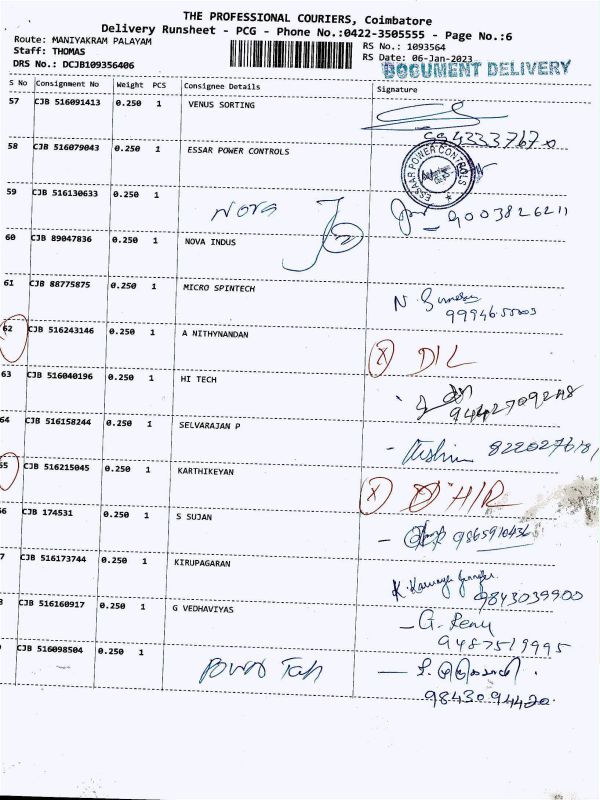 THE PROFESSIONAL COURIERS, Coimbatore
Delivery Runsheet - PCG - Phone No.:0422-3505555 - Page No.:6
Route: MANIYAKRAM PALAYAM
Staff: THOMAS
DRS No.: DCJB109356406
RS No.: 1093564
RS Date: 06-Jan-2023
DOCUMENT DELIVERY
S No Consignment No Weight PCS Consignee Details Signature
57 CJB 516091413 0.250 1 VENUS SORTING
58 CJB 516079043 0.250 1 ESSAR POWER CONTROLS
ESSAR POWER CONTROLS
59 CJB 516130633 0.250 1 NOVA 9003826211
60 CJB 89047836 0.250 1 NOVA INDUS
61 CJB 88775875 0.250 1 MICRO SPINTECH
62 CJB 516243146 0.250 1 A NITHYNANDAN X D/L
63 CJB 516040196 0.250 1 HI TECH
64 CJB 516158244 0.250 1 SELVARAJAN P
65 CJB 516215045 0.250 1 KARTHIKEYAN X
66 CJB 174531 0.250 1 S SUJAN
7 CJB 516173744 0.250 1 KIRUPAGARAN
9843039900
8 CJB 516160917 0.250 1 G VEDHAVIYAS
9487519995
CJB 516098504 0.250 1
9843094420